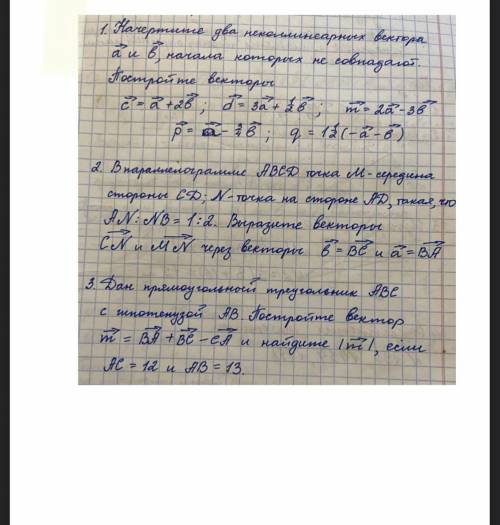 1. Начертите два неколлинеарных вектора
a⃗ и b⃗, начала которых не совпадают.
Постройте векторы
c⃗ = a⃗ + 2b⃗ ; d⃗ = 3a⃗ + ½b⃗ ; m⃗ = 2a⃗ - 3b⃗
p⃗ = a⃗ - ¾b⃗ ; q = 1½(-a⃗ - b⃗)
2. В параллелограмме ABCD точка M- середина
стороны CD; N- точка на стороне AD, такая, что
AN : NB = 1 : 2. Выразите векторы
CN⃗ и MN⃗ через векторы b⃗ = BC⃗ и a⃗ = BA⃗
3. Дан прямоугольный треугольник ABC
с гипотенузой AB. Постройте вектор
m⃗ = BA⃗ + BC⃗ - CA⃗ и найдите |m⃗|, если
AC = 12 и AB = 13.